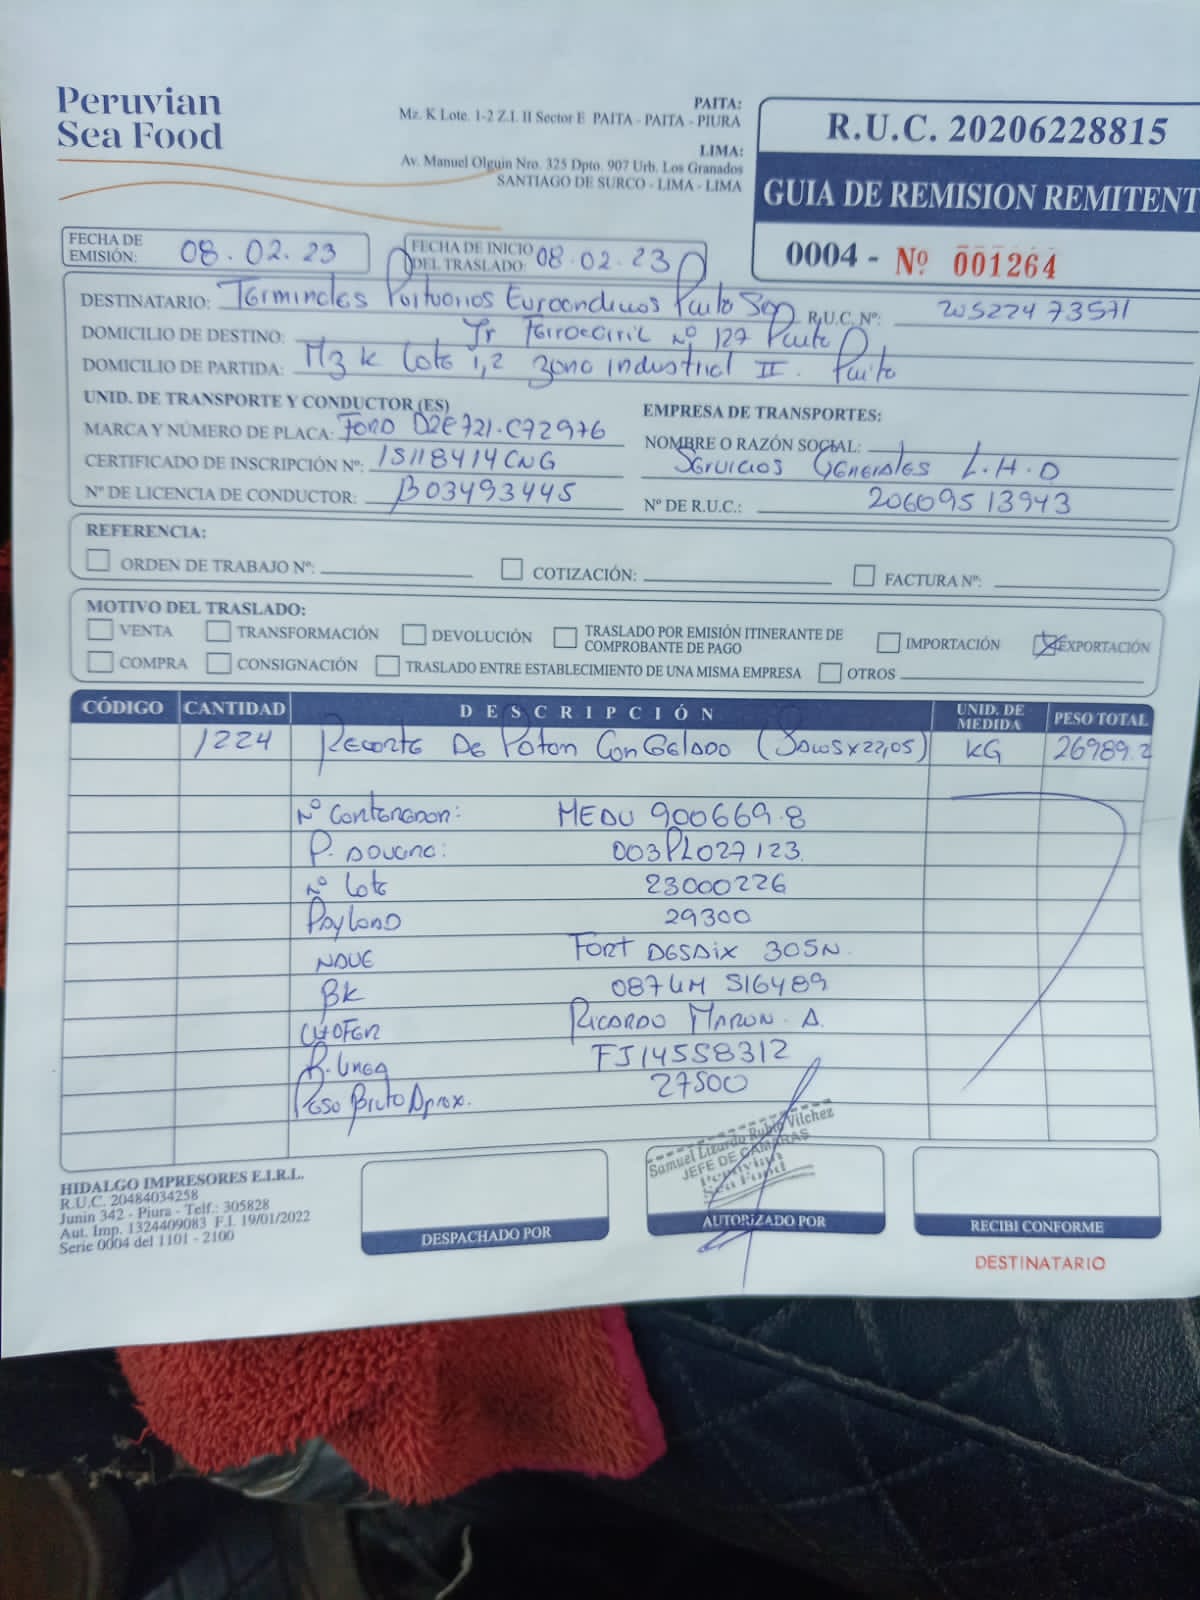 Peruvian
Sea Food
PAITA:
Mz. K Lote. 1-2 Z.I. II Sector E PAITA - PAITA - PIURA
LIMA:
Av. Manuel Olguin Nro. 325 Dpto. 907 Urb. Los Granados
SANTIAGO DE SURCO - LIMA - LIMA
R.U.C. 20206228815
GUIA DE REMISION REMITENT
0004 - Nº 001264
FECHA DE EMISIÓN: 08.02.23
FECHA DE INICIO DEL TRASLADO: 08.02.23
DESTINATARIO: Terminales Portuarios Euroandinos Paita R.U.C. Nº: 20522473571
DOMICILIO DE DESTINO: Jr Ferrocarril Nº 127 Paita
DOMICILIO DE PARTIDA: Mz K Lote 1,2 Zona Industrial II. Paita
UNID. DE TRANSPORTE Y CONDUCTOR (ES)
MARCA Y NÚMERO DE PLACA: FORD D2E721.C72976
CERTIFICADO DE INSCRIPCIÓN Nº: 15118414CNG
Nº DE LICENCIA DE CONDUCTOR: B03493445
EMPRESA DE TRANSPORTES:
NOMBRE O RAZÓN SOCIAL:
Servicios Generales L.H.O
Nº DE R.U.C.: 20609513943
REFERENCIA:
ORDEN DE TRABAJO Nº: COTIZACIÓN: FACTURA Nº:
MOTIVO DEL TRASLADO:
VENTA TRANSFORMACIÓN DEVOLUCIÓN TRASLADO POR EMISIÓN ITINERANTE DE COMPROBANTE DE PAGO IMPORTACIÓN EXPORTACIÓN
COMPRA CONSIGNACIÓN TRASLADO ENTRE ESTABLECIMIENTO DE UNA MISMA EMPRESA OTROS
CÓDIGO CANTIDAD DESCRIPCIÓN UNID. DE MEDIDA PESO TOTAL
1224 Recorte De Poton Congelado KG 26989.2
Nº Contenedor: MEDU 900669.8
P. Aduana: 003PL027123
Nº Lote 23000226
Payload 29300
Nave FORT DESAIX 305N
BK 087LM S16489
Chofer Ricardo A.
P. Linea FJ14558312
Peso Bruto Aprox. 27500
Samuel Lizardo Rubio Vilchez
JEFE DE CAMARAS
Peruvian
Sea Food
HIDALGO IMPRESORES E.I.R.L.
R.U.C. 20484034258
Junin 342 - Piura - Telf.: 305828
Aut. Imp. 1324409083 F.I. 19/01/2022
Serie 0004 del 1101 - 2100
DESPACHADO POR
AUTORIZADO POR
RECIBI CONFORME
DESTINATARIO